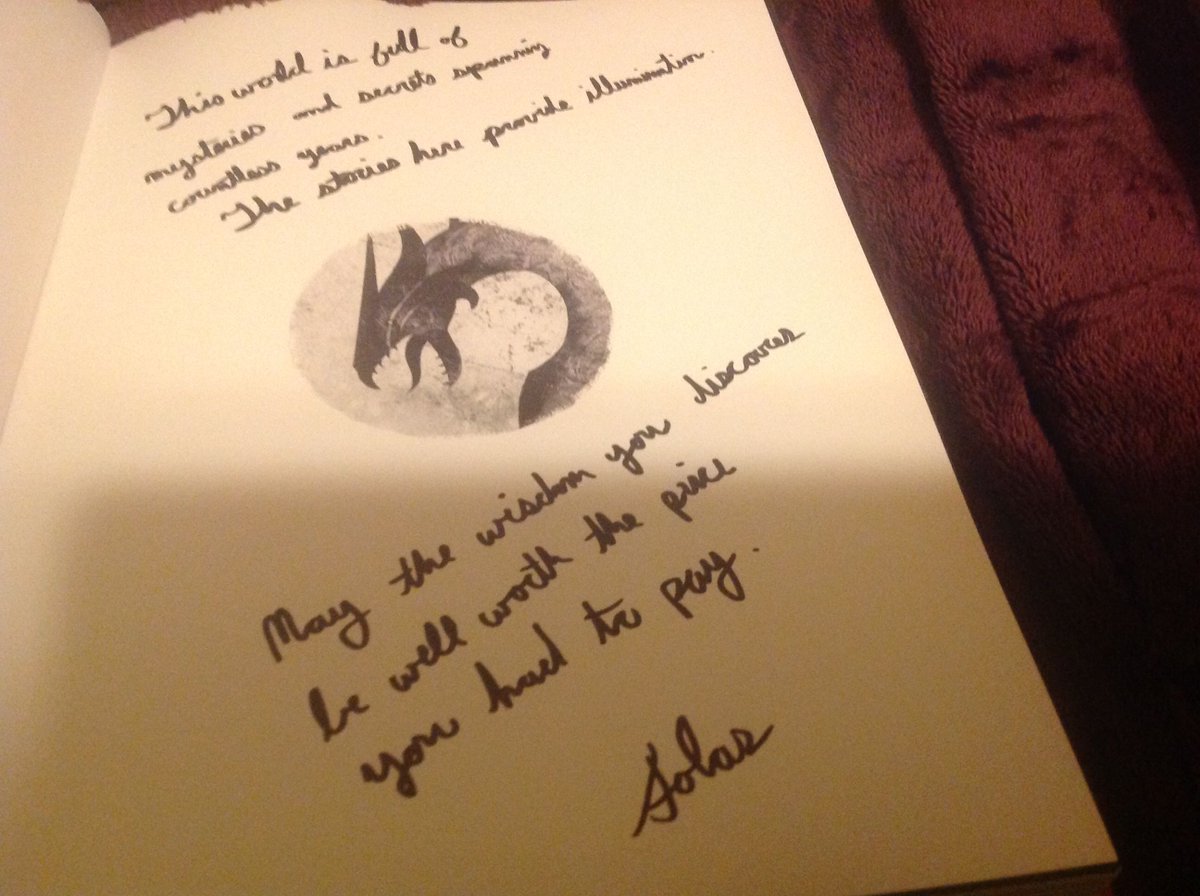 This world is full of
mysteries and secrets spanning
countless years.
The stories here provide illumination.
May the wisdom you discover
be well worth the price
you had to pay.
Solas